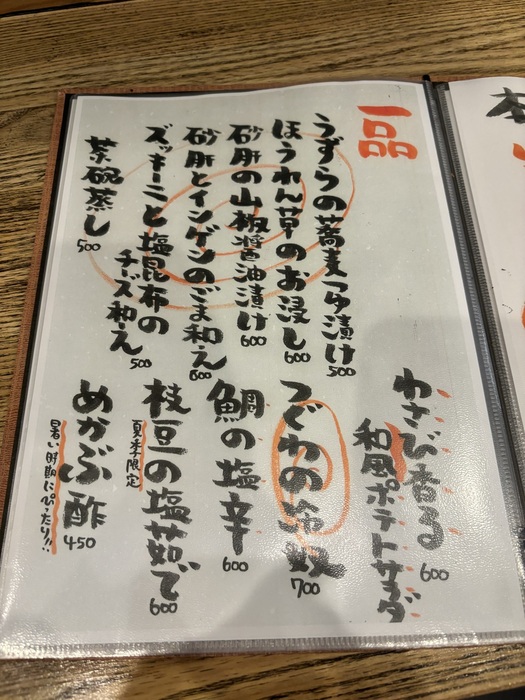 一品
うずらの蕎麦つゆ漬け
500
ほうれん草のお浸し
600
砂肝の山椒醤油漬け
600
砂肝とインゲンのごま和え
600
ズッキーニと塩昆布の
チーズ和え
500
茶碗蒸し
500
わさび香る
和風ポテトサラダ
600
つぐわの冷奴
700
鯛の塩辛
600
枝豆の塩茹で
夏季限定
600
めかぶ酢
450
暑い時期にぴったり!!
本